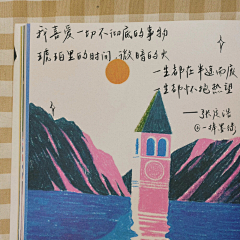 我喜爱一切不彻底的事物
琥珀里的时间 微暗的火
一生都在半途而废
一生都怀抱热望
——张定浩